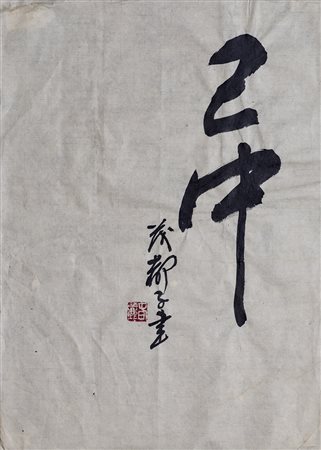 己中
茂都子書